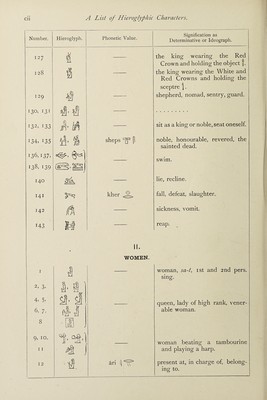 cii A List of Hieroglyphic Characters.
Number. Hieroglyph. Phonetic Value. Signification as
Determinative or Ideograph.
127 the king wearing the Red
Crown and holding the object
128 the king wearing the White and
Red Crowns and holding the
sceptre
129 shepherd, nomad, sentry, guard.
130, 131 . . . . . . . . .
132, 133 sit as a king or noble, seat oneself.
134, 135 sheps noble, honourable, revered, the
sainted dead.
136, 137, swim.
138, 139
140 lie, recline.
141 kher fall, defeat, slaughter.
142 sickness, vomit.
143 reap.
II.
WOMEN.
1 woman, sa-t, 1st and 2nd pers.
sing.
2, 3,
4, 5, queen, lady of high rank, vener-
6, 7, able woman.
8
9, 10, woman beating a tambourine
11 and playing a harp.
12 ári present at, in charge of, belong-
ing to.